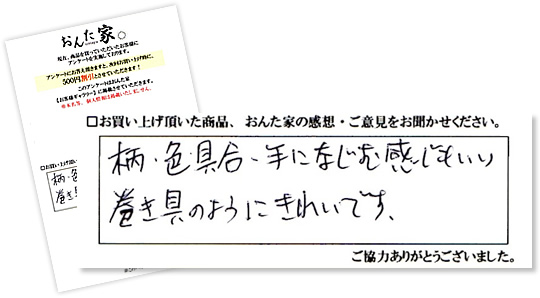 おんた家。
現在、商品を買っていただいたお客様に
アンケートを実施しております。
アンケートにお答え頂きますと、次回お買い上げ時に、
500円割引とさせていただきます!
このアンケートはおんた家
【お客様ギャラリー】に掲載させていただきます。
※本名等、個人情報は掲載いたしません。
□お買い上げ頂い
柄・色
巻き具
□お買い上げ頂いた商品、おんた家の感想・ご意見をお聞かせください。
柄・色・具合・手になじむ感じもいい
巻き具のようにきれいです、
ご協力ありがとうございました。